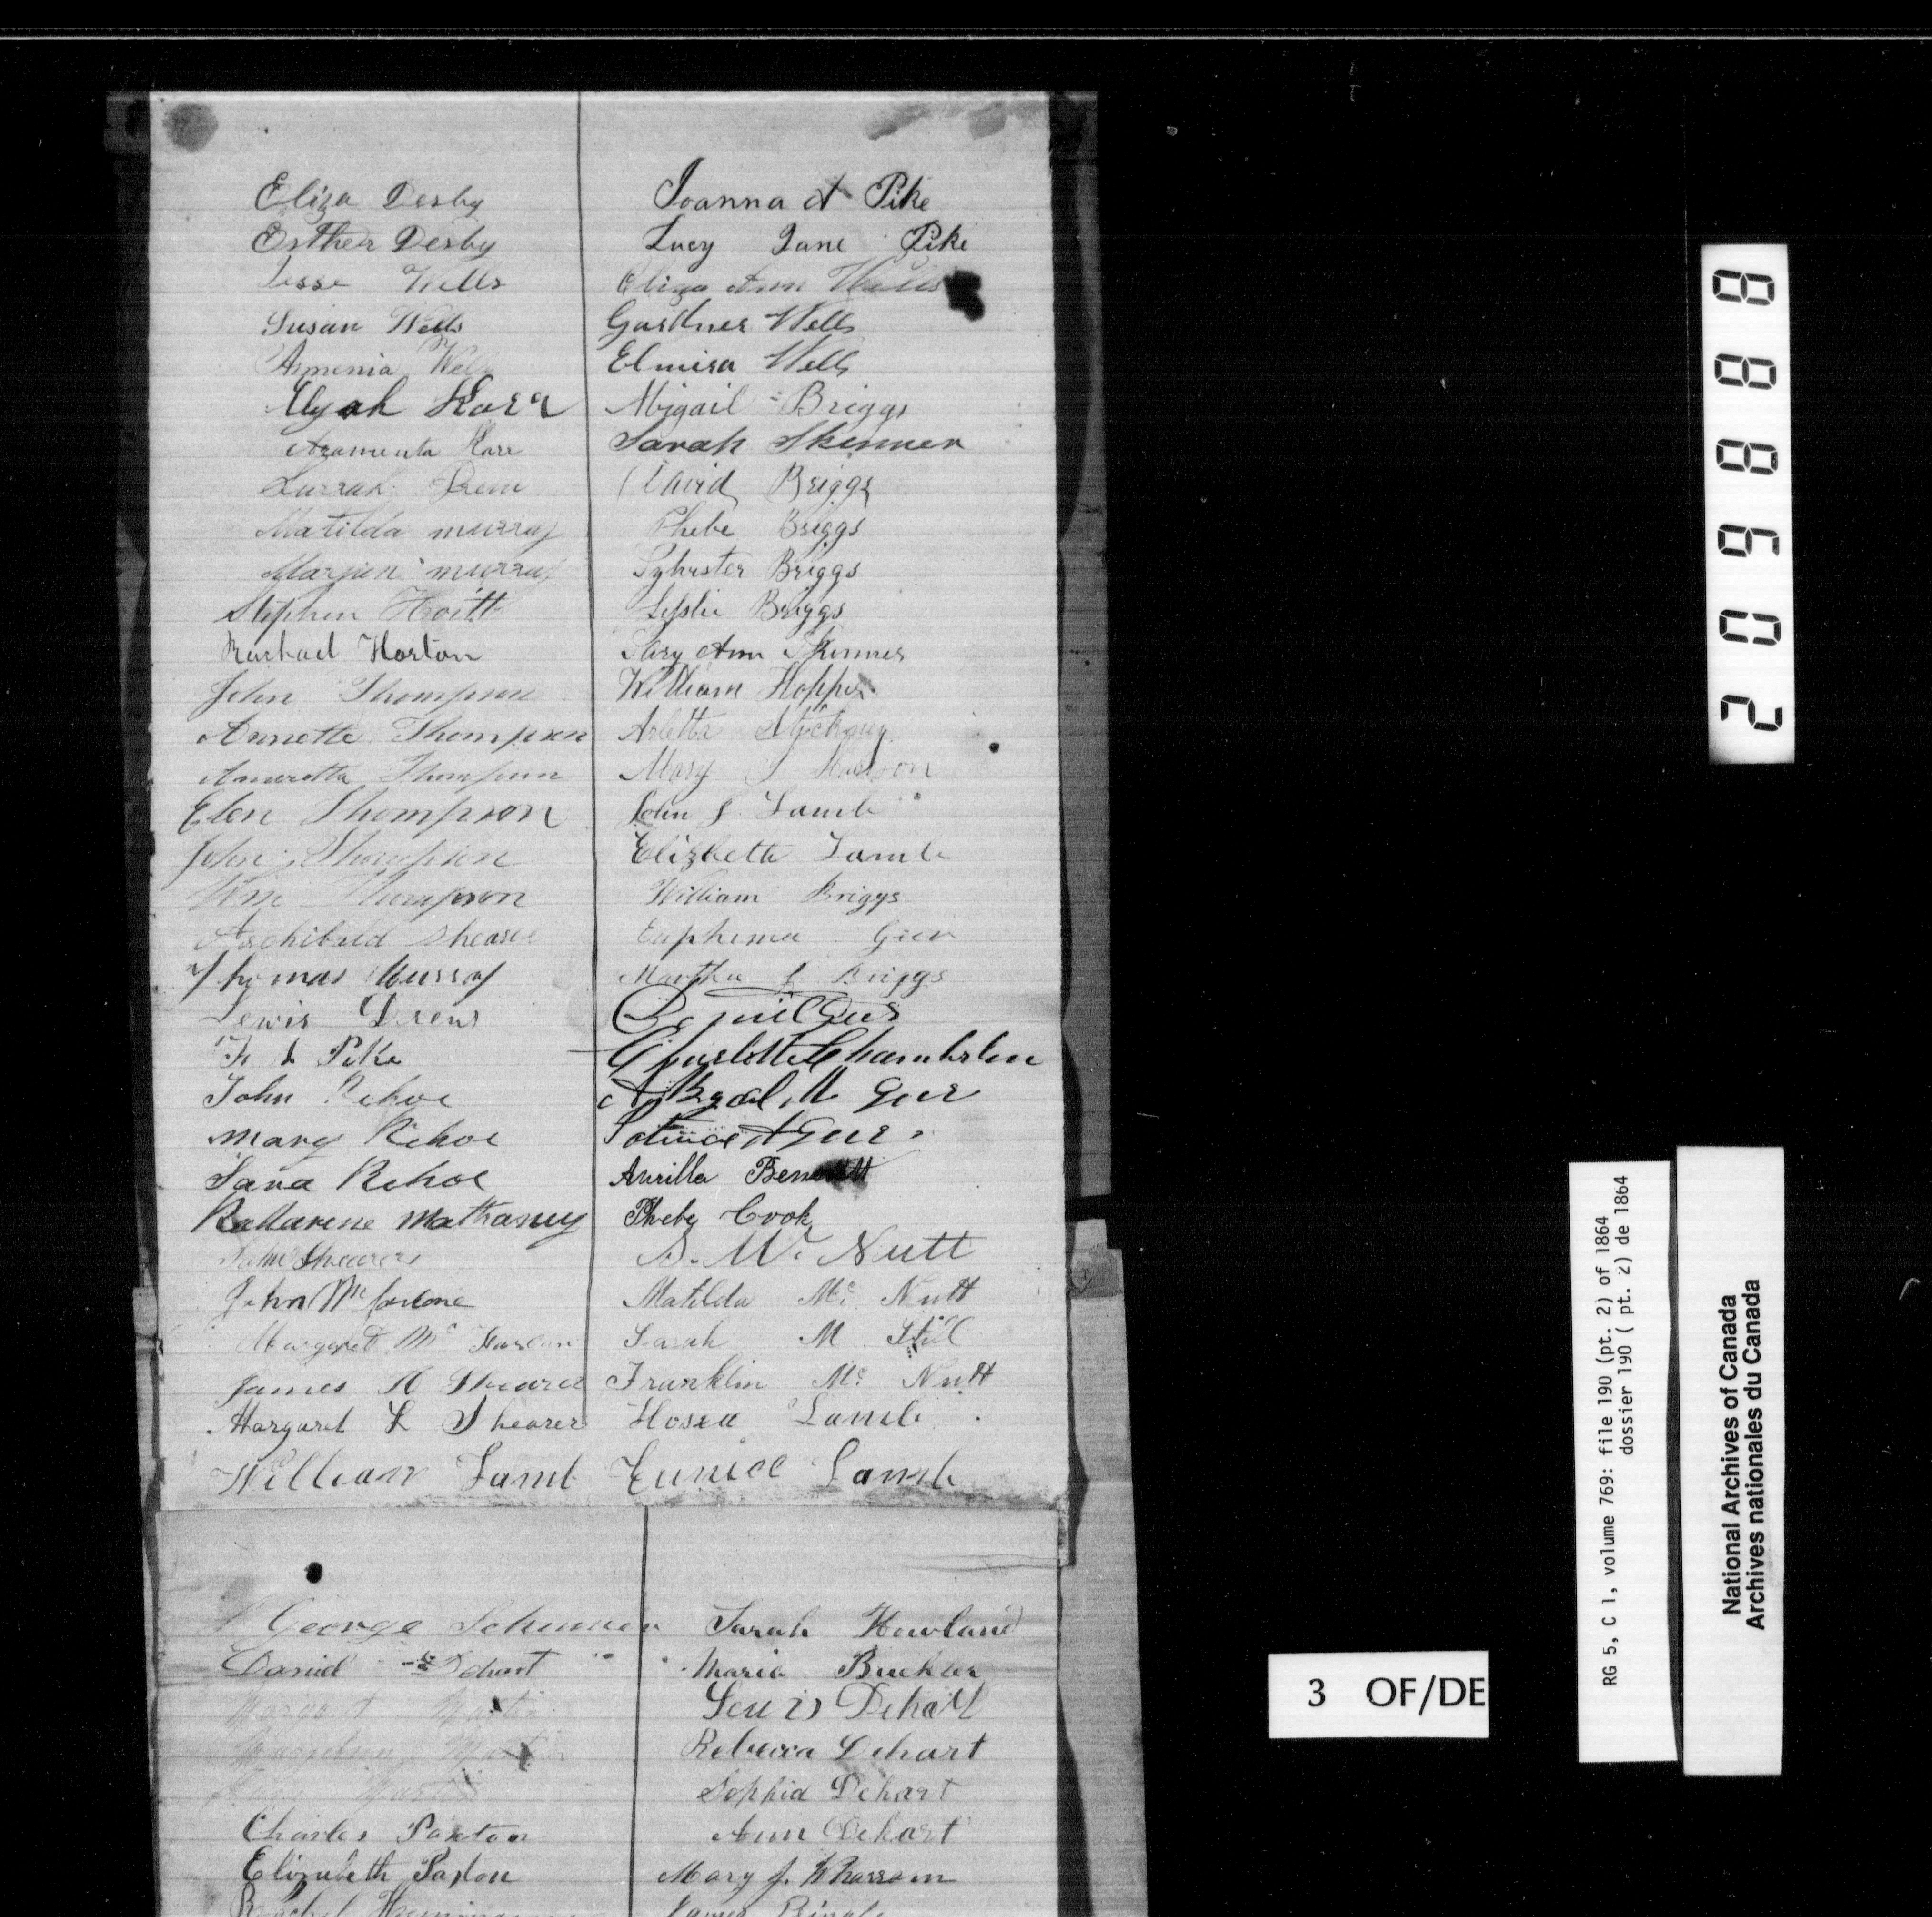 Eliza Derby
Esther Derby
Jesse Wells
Susan Wells
Armenia Wells
Karr
Karr
Drew
Matilda murray
murray
Stephen Hoitt
Rachael Horton
John Thompson
Annette Thompson
Thompson
Elen Thompson
John Thompson
Wm Thompson
Archibald Shearer
Thomas Murray
Lewis Drew
Pike
John Kehoe
Mary Kehoe
Sara Kehoe
Katarene Mathaney
Shearer
John Mc farlane
Margaret Mc Farlan
James R Shearer
Margaret L Shearer
William Lamb
Joanna A Pike
Lucy Jane Pike
Eliza Ann Wells
Gardner Wells
Elmira Wells
Abigail Briggs
Sarah Skinner
David Briggs
Phebe Briggs
Sylvester Briggs
Leslie Briggs
Ann Skinner
William Hopper
Arletta
Mary
John S. Lamb
Elizbeth Lamb
William Briggs
Euphema Geer
Martha J Briggs
Charlotte Chamberlen
Geer
A Geer
Aurilla Bennett
Phebe Cook
S. Mc Nutt
Matilda Mc Nutt
Sarah M Still
Franklin Mc Nutt
Hosea Lamb
Eunice Lamb
George
Daniel Dehart
Margaret Martin
Martin
Martin
Charles Paxton
Elizabeth Paxton
Rachel
Sarah Howland
Maria Buckler
Lewis Dehart
Rebecca Dehart
Sophia Dehart
Ann Dehart
Mary J. Wharram
James
2 0 6 8 8 8
RG 5, C 1, volume 769: file 190 (pt. 2) of 1864
dossier 190 ( pt. 2) de 1864
National Archives of Canada
Archives nationales du Canada
3 OF/DE